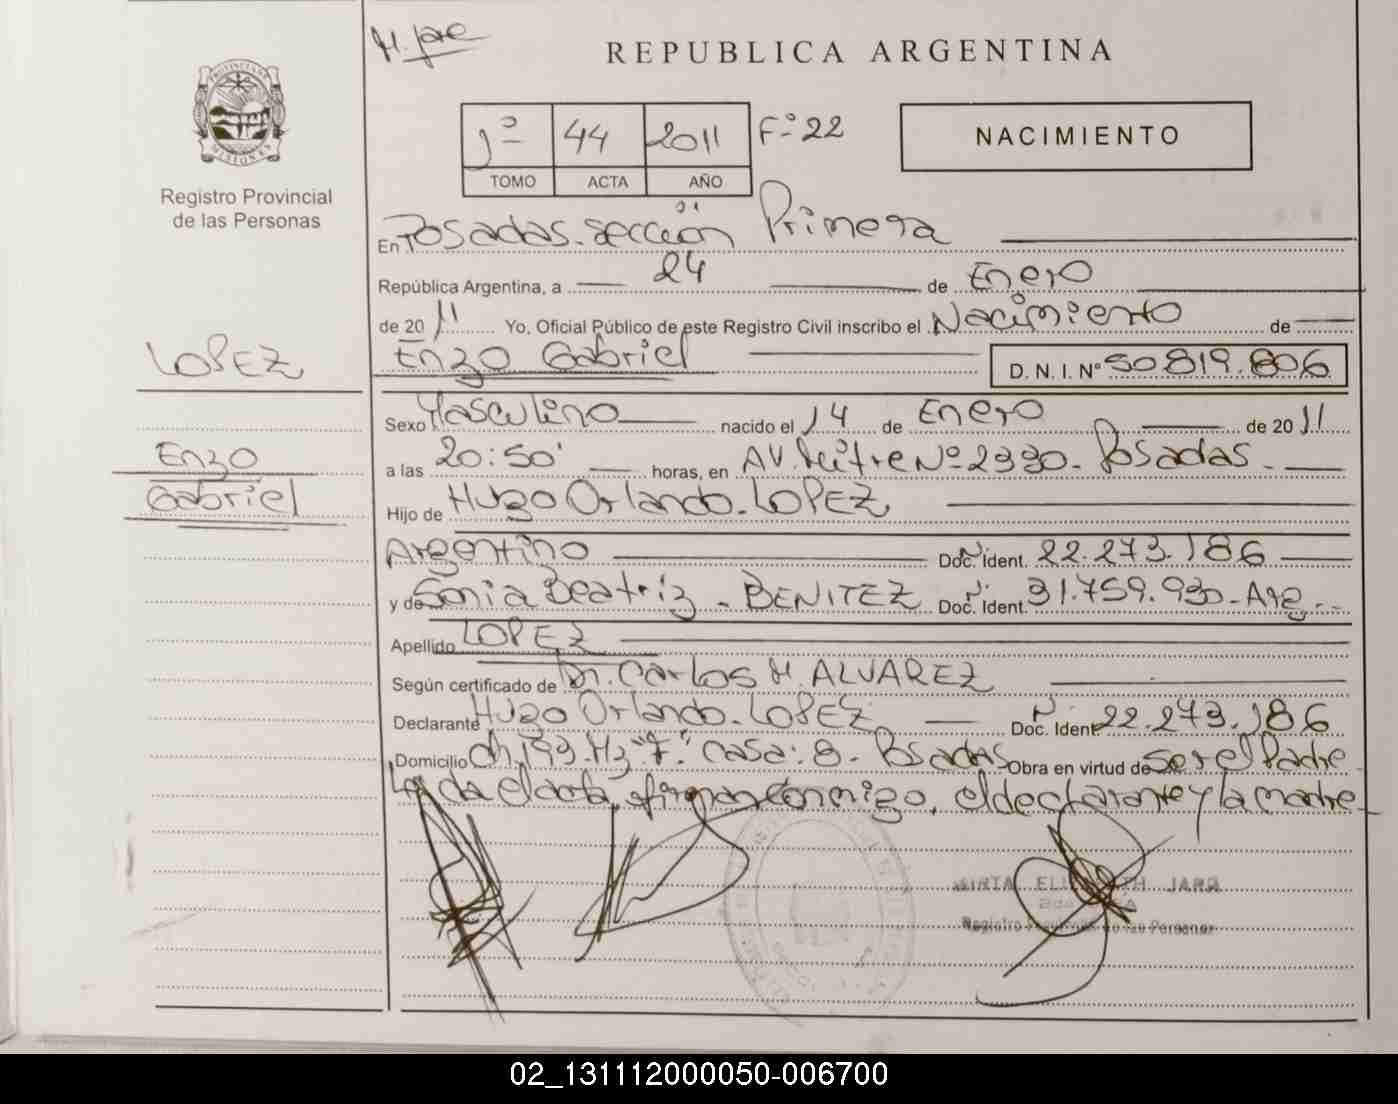 H. Jare
REPUBLICA ARGENTINA
PROVINCIA DE
MISIONES
Registro Provincial
de las Personas
1º 44 2011 Fº 22
TOMO ACTA AÑO
NACIMIENTO
En Posadas. sección Primera
República Argentina, a 24 de Enero
de 2011 Yo, Oficial Público de este Registro Civil inscribo el Nacimiento de
LOPEZ
Enzo Gabriel D. N. I. Nº 50.819.806
Sexo Masculino nacido el 14 de Enero de 2011
Enzo
a las 20:50' horas, en AV. Mitre Nº 2330. Posadas.
Gabriel
Hijo de Hugo Orlando. LOPEZ
Argentino Doc. Ident. Nº 22.273.186
y de Sonia Beatriz - BENITEZ Doc. Ident. Nº 31.759.930 - Arg.
Apellido LOPEZ
Según certificado de Dr. Carlos H. ALVAREZ
Declarante Hugo Orlando. LOPEZ Doc. Ident. Nº 22.273.186
Domicilio Ch. 193. Mz "7". Casa: 8. Posadas Obra en virtud de ser el Padre.
Leída el acta, firman conmigo, el declarante y la madre
MIRTA ELIZABETH JARA
Registro Provincial de las Personas
02_131112000050-006700